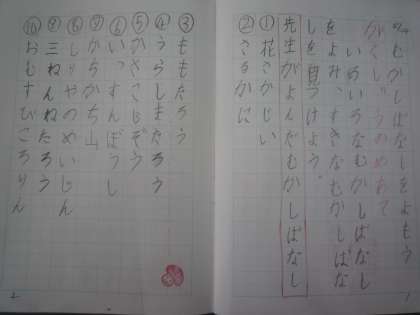 むかしばなしをよもう
がくしゅうのめあて
いろいろなむかしばなし
をよみ、すきなむかしばな
しを見つけよう。
先生がよんだむかしばなし
①花さかじい
②さるかに
③ももたろう
④うらしまたろう
⑤かさこじぞう
⑥いっすんぼうし
⑦かちかち山
⑧のめいじん
⑨三ねんねたろう
⑩おむすびころりん